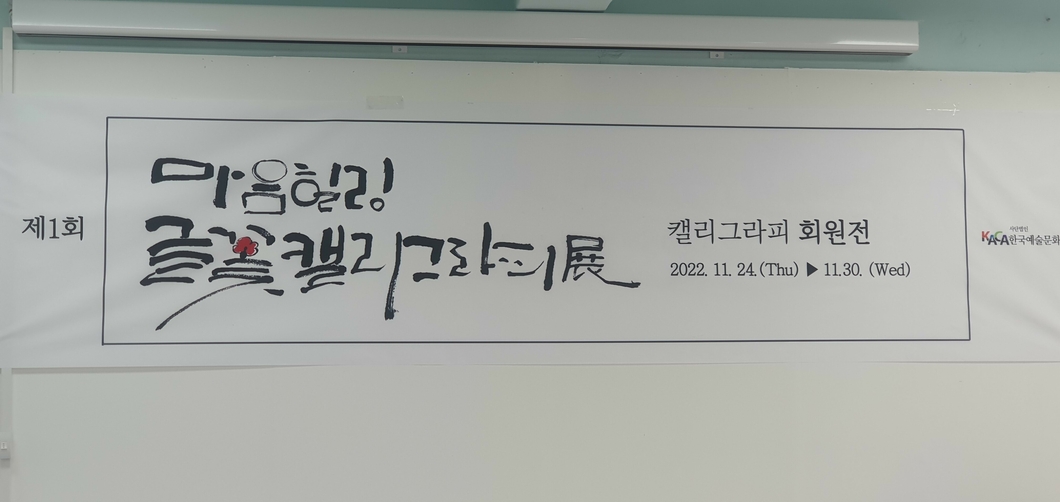 제1회
마음힐링
글꽃캘리그라피展
캘리그라피 회원전
2022. 11. 24.(Thu) ▶ 11.30. (Wed)
사단법인
KACA한국예술문화